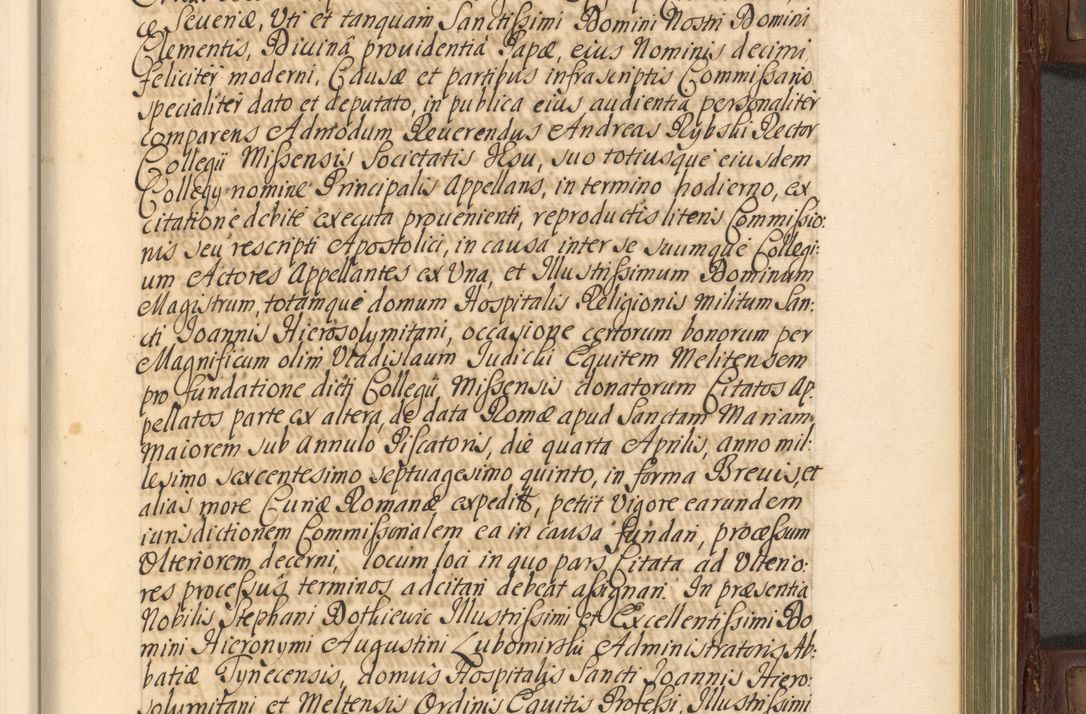 æ Severiæ, Uti et tanquam Sanctissimi Domini Nostri Domini
Clementis, Divinâ providentiâ Papæ, eius Nominis decimi,
feliciter moderni, Causæ et partibus infrascriptis Commissario
specialiter dato et deputato, in publica eius audientia personaliter
comparens Admodum Reverendus Andreas Rybski Rector
Collegÿ Missensis Societatis Iesu, suo totiusque eiusdem
Collegÿ nomine Principalis Appellans, in termino hodierno, ex
citatione debite executa provenienti, reproductis literis Commissio:
nis seu rescripti Apostolici, in causa inter se suumque Collegi:
um Actores Appellantes ex Una, et Illustrissimum Dominum
Magistrum, totamque domum Hospitalis Religionis militum San:
cti Joannis Hierosolymitani, occasione certorum bonorum per
Magnificum olim Vladislaum Judicki Equitem Melitensem
pro fundatione dicti Collegÿ Missensis donatorum Citatos Ap:
pellatos parte ex altera, de data Romæ apud Sanctam Mariam
Maiorem sub Annulo Piscatoris, die quarta Aprilis, anno mil:
lesimo sexcentesimo septuagesimo quinto, in forma Brevis, et
alias more Curiæ Romanæ expedit, petiit Vigore earundem
iurisdictionem Commissorialem ea in causa fundari, processum
Ulteriorem decerni, locum loci in quo pars Citata ad Ulterio:
res processûs terminos adcitari debeat assignari. In præsentia
Nobilis Stephani Dotkiewic Illustrissimi et Excellentissimi Do
mini Hieronymi Augustini Lubomirski Administratoris Ab:
batiæ Tynecensis, domûs Hospitalis Sancti Joannis Hiero:
solymitani et Meltensis Ordinis Equitis Professi, Illustrissimi